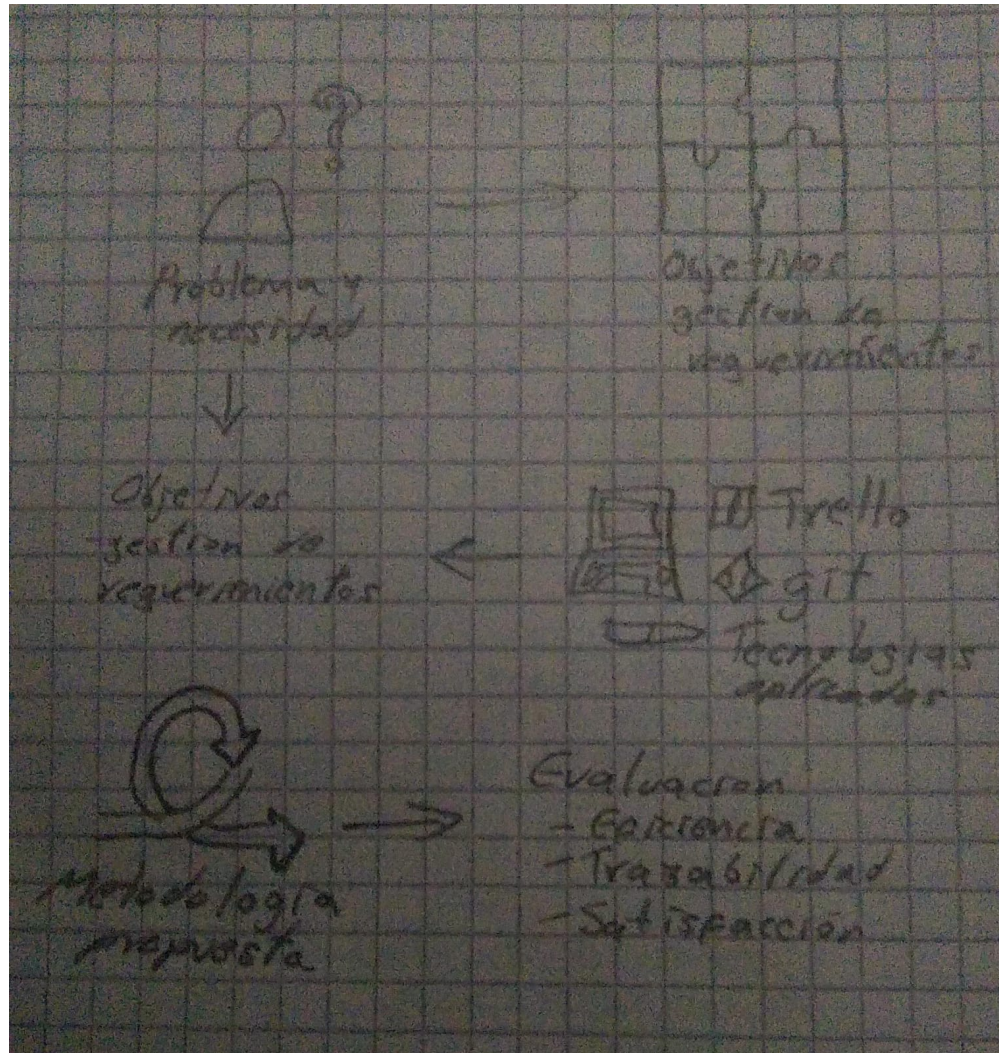 Problema y
necesidad
Objetivos
gestion de
requerimientos
Objetivos
gestion de
requerimientos
Trello
git
Tecnologias
aplicadas
Metodología
propuesta
Evaluacion
- Eficiencia
- Trazabilidad
- Satisfacción